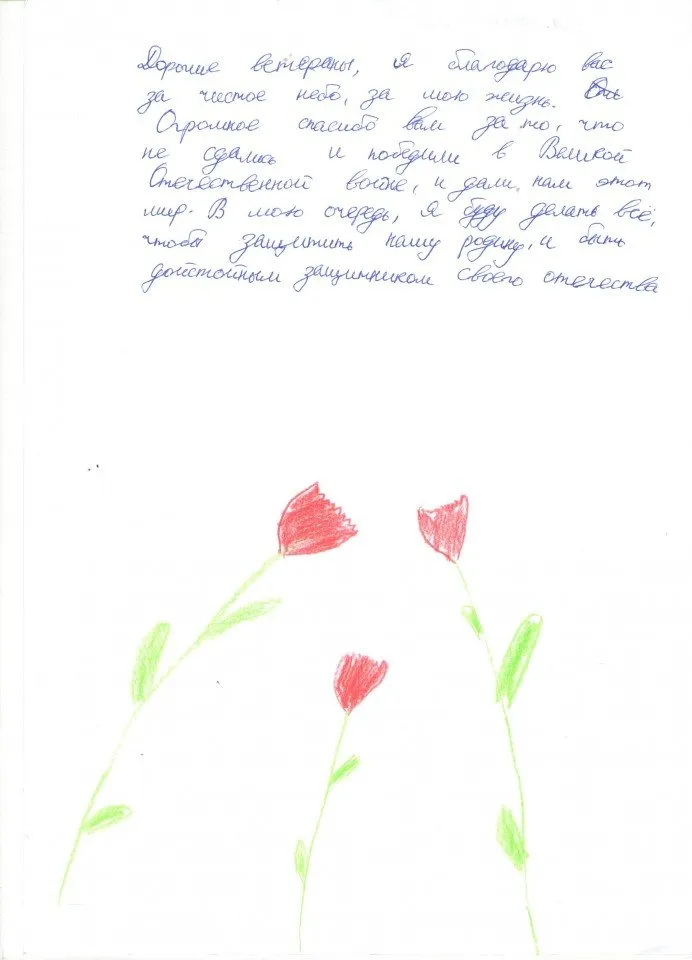 Дорогие ветераны, я благодарю вас
за чистое небо, за мою жизнь.
Огромное спасибо вам за то, что
не сдались и победили в Великой
Отечественной войне, и дали нам этот
мир. В мою очередь, я буду делать всё,
чтобы защитить нашу родину, и быть
дойстойным защитником своего отечества